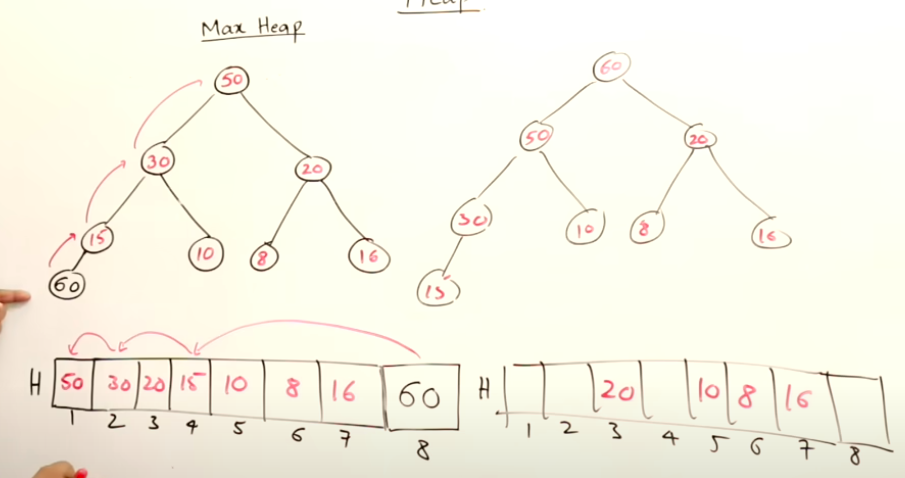 Heap
Max Heap
50
30
20
15
10
8
16
60
60
50
20
30
10
8
16
15
H 50 30 20 15 10 8 16 60
1 2 3 4 5 6 7 8
H 20 10 8 16
1 2 3 4 5 6 7 8